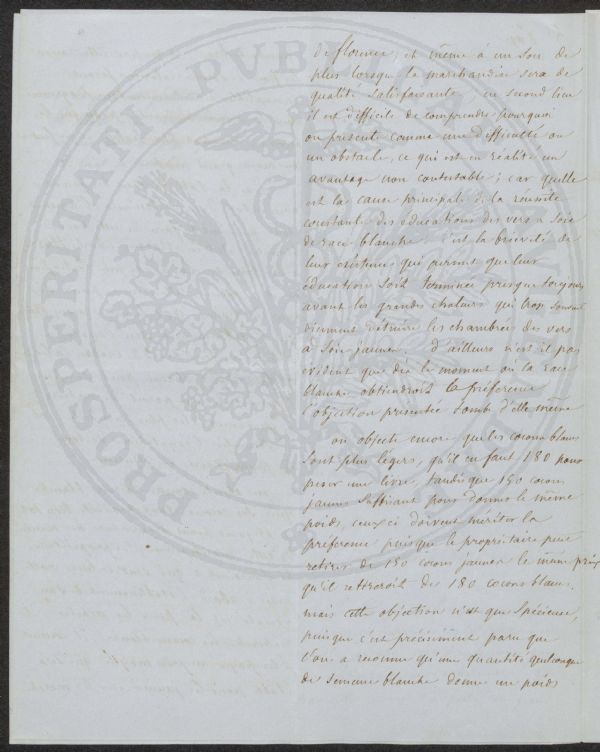 de florence, et même à un sou de
plus lorsque la marchandise sera de
qualité satisfaisante. en second lieu
il est difficile de comprendre pourquoi
on présente comme une difficulté ou
un obstacle, ce qui est en réalité un
avantage non contestable; car quelle
est la cause principale de la réussite
constante des éducations des vers à soie
de race blanche. c'est la brièveté de
leur existence qui permet que leur
éducation soit terminée presque toujours
avant les grandes chaleurs qui trop souvent
viennent détruire les chambrées des vers
à soie jaunes. d'ailleurs n'est il pas
évident que dès le moment où la race
blanche obtiendroit la préférence
l'objection présentée tombe d'elle même
on objecte encore que les cocons blancs
sont plus légers, qu'il en faut 180 pour
peser une livre, tandis que 150 cocons
jaunes suffisant pour donner le même
poids, ceux ci doivent mériter la
préférence puisque le propriétaire peut
retirer de 150 cocons jaunes le même prix
qu'il retireroit de 180 cocons blancs.
mais cette objection n'est que spécieuse,
puisque c'est précisément parce que
l'on a reconnu qu'une quantité quelconque
de semence blanche donne un poids
PROSPERITATI PUBLICAE